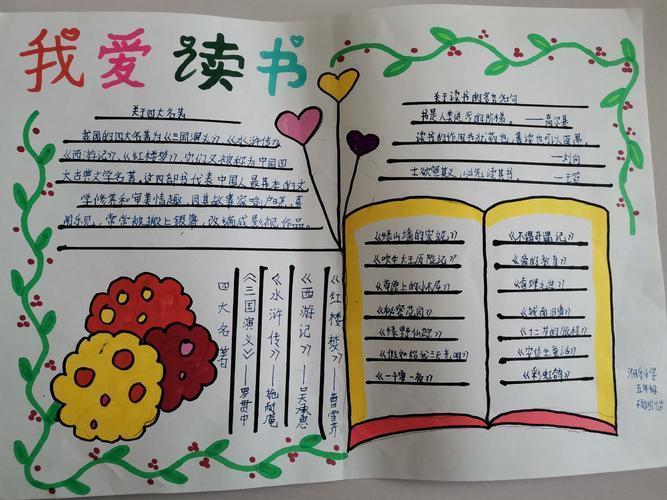 我爱读书
关于四大名著
我国的四大名著为《三国演义》、《水浒传》
《西游记》、《红楼梦》，它们又被称为中国四
大古典文学名著，这四部书代表中国人最基本的文
学修养和审美情趣，因其故事家喻户晓、喜
闻乐见，常常被搬上银幕，改编成影视作品。
四大名著
《三国演义》——罗贯中
《水浒传》——施耐庵
《西游记》——吴承恩
《红楼梦》——曹雪芹
关于读书的名言名句
书是人类进步的阶梯。——高尔基
读书的作用犹如药也，善读也可以医愚
——刘向
士欲宣其义，必先读其书。——王符
《绿山墙的安妮》
《吹牛大王历险记》
《草原上的小木屋》
《秘密花园》
《绿野仙踪》
《假如给我三天光明》
《一千零一夜》
《木偶奇遇记》
《爱的教育》
《城南旧事》
《安徒生童话》
《彩虹鸽》
小学
五年级